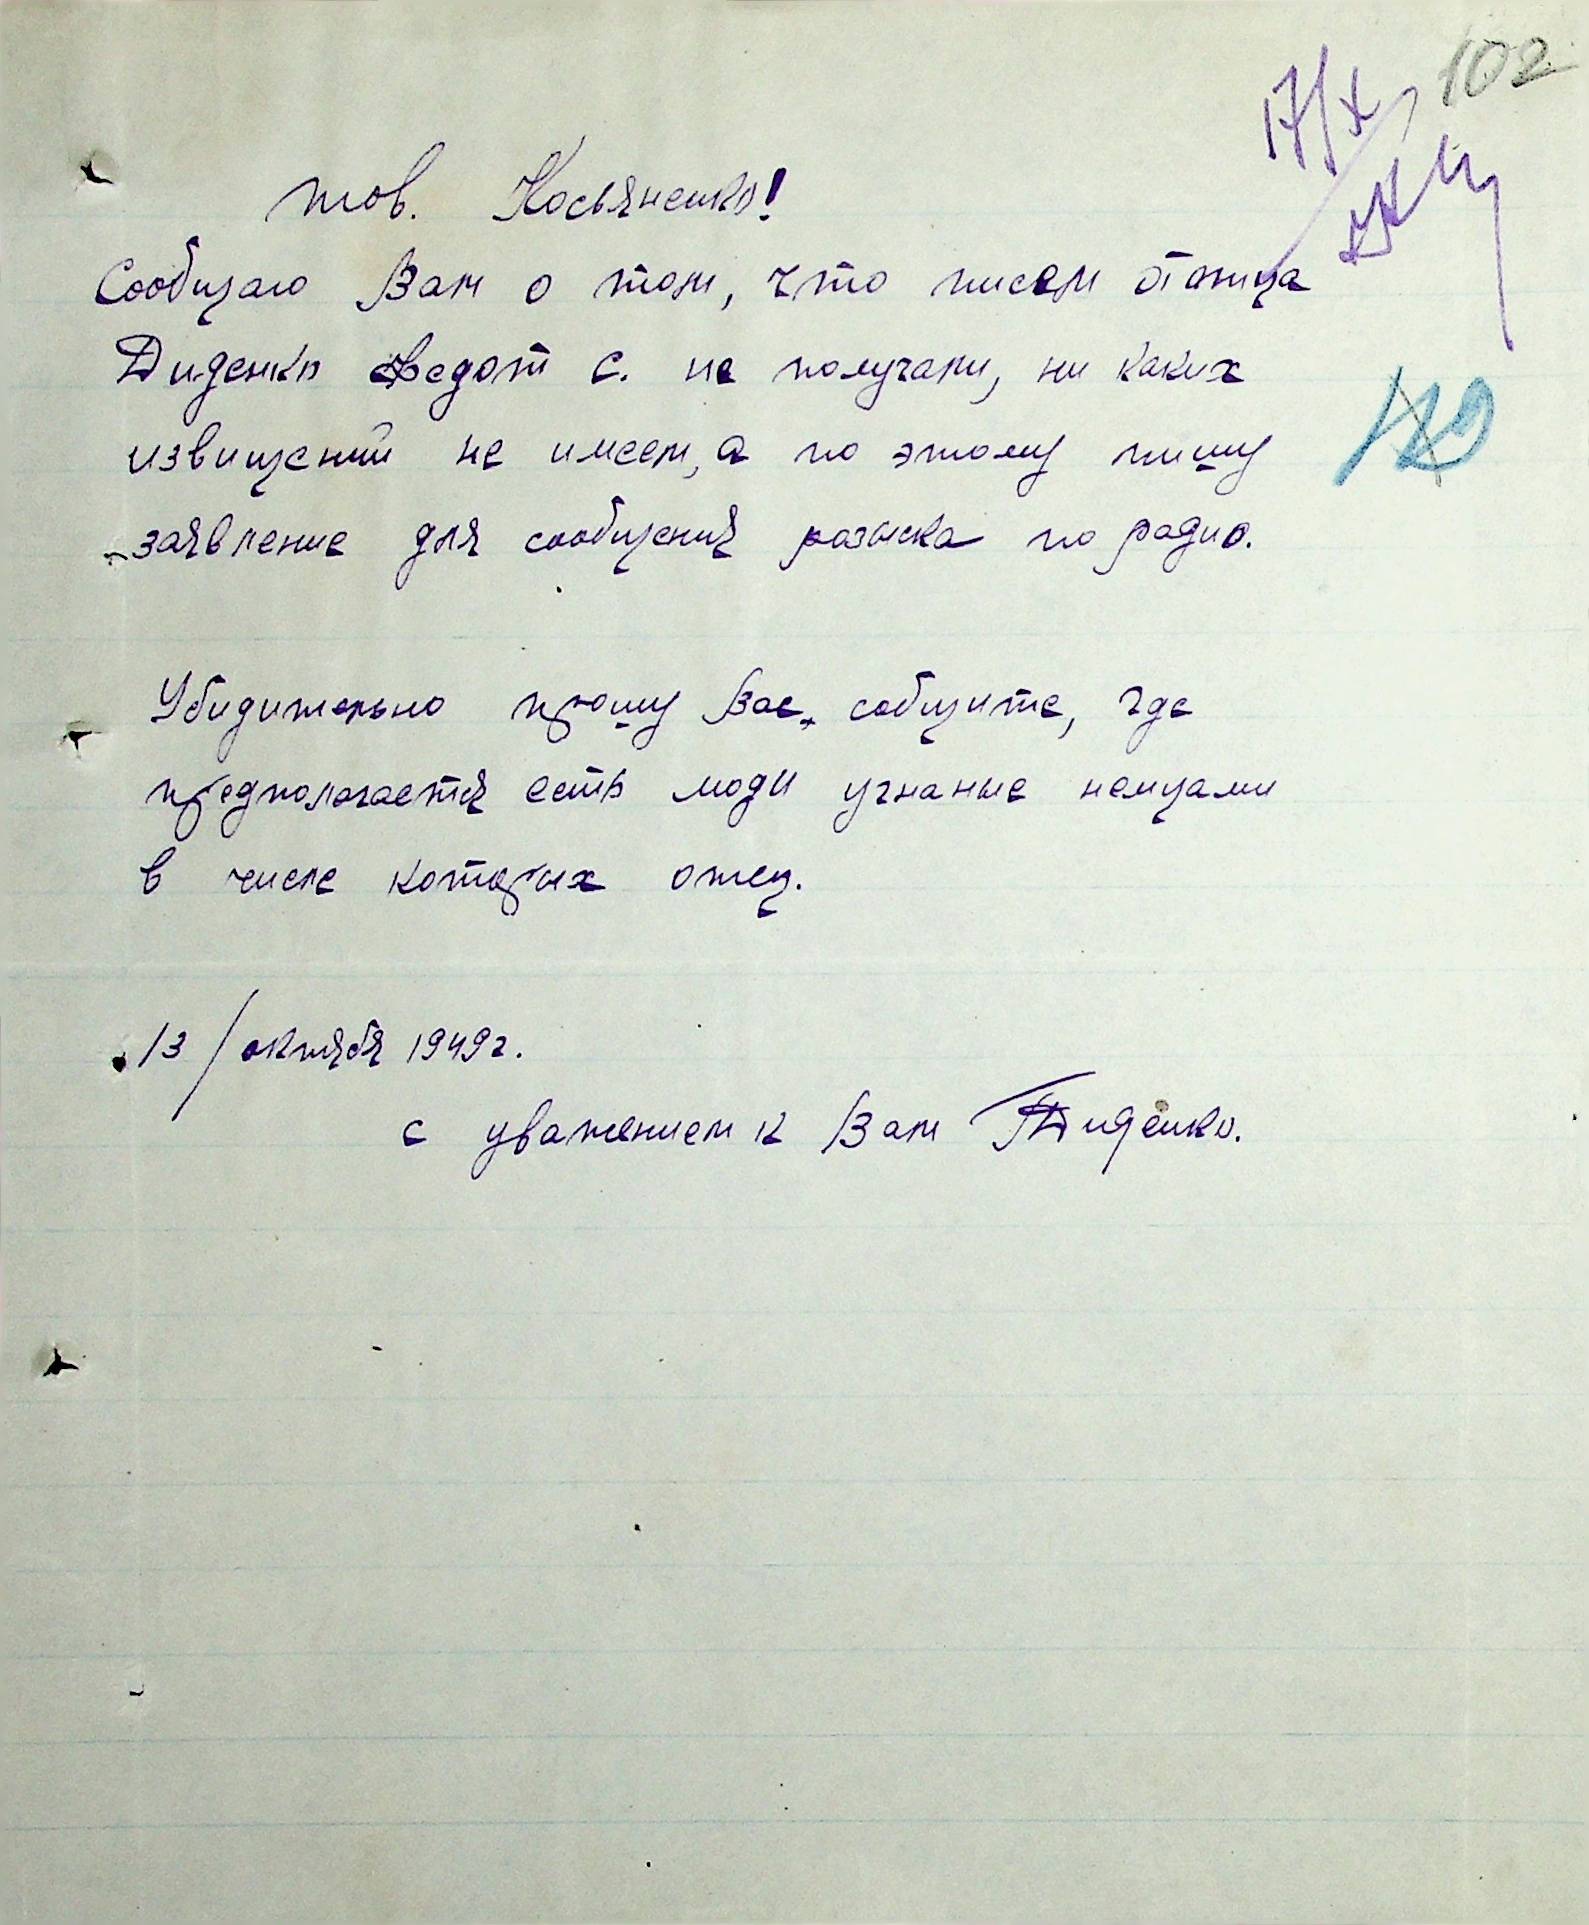 17/X
102
тов. Косьяненко!
Сообщаю Вам о том, что писем от отца
Диденко Федот С. не получали, ни каких
извищений не имеем, а по этому пишу
заявление для сообщения розыска по радио.
Убидительно прошу Вас, собщите, где
предпологается есть люди угнаные немцами
в числе которых отец.
13/октября 1949г.
с уважением к Вам Диденко.